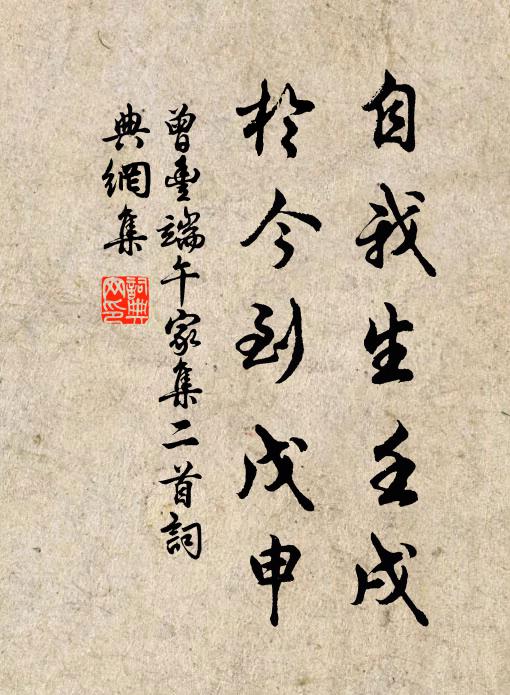 自我生壬戌
於今到戊申
曾豐端午家集二首詞
典網集
詞典
网印